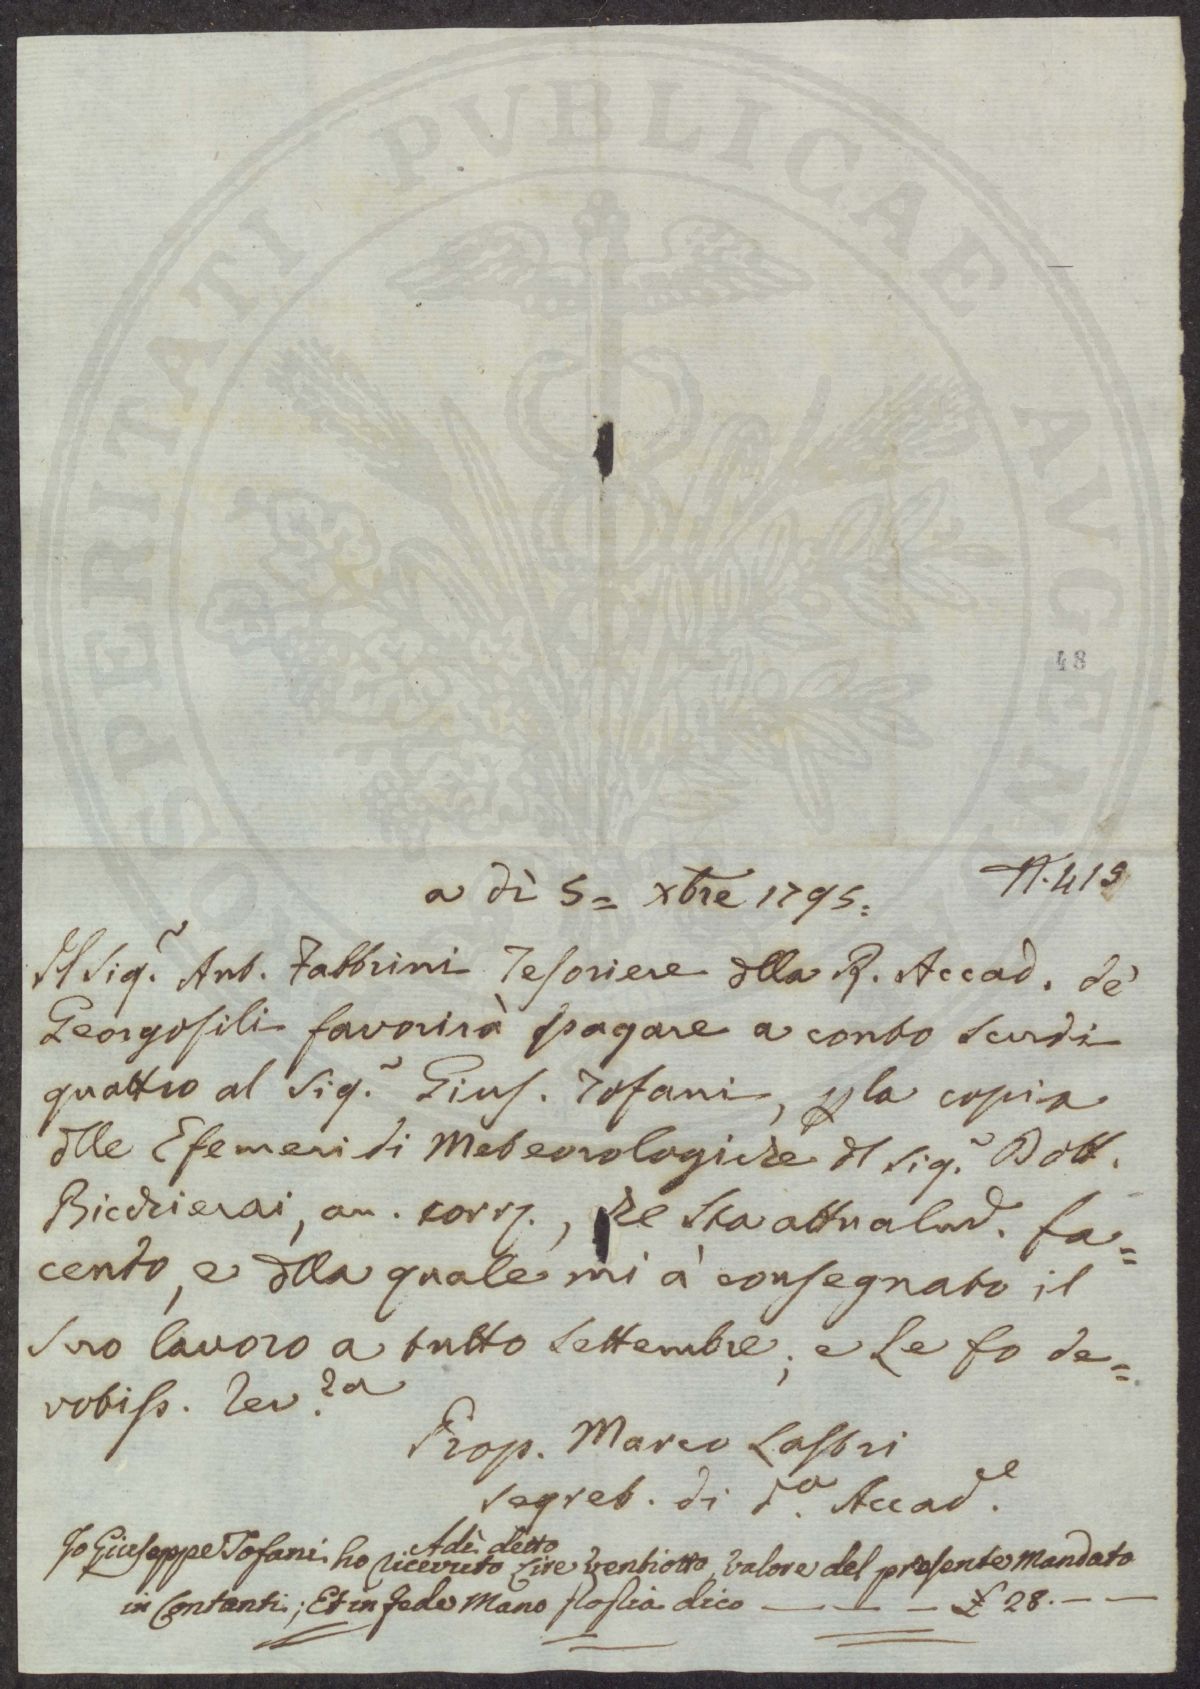 PROSPERITATI PVBLICAE AVGENDAE
48
N. 419
a dì 5= Xbre 1795:
Il Sig.r Ant. Fabbrini Tesoriere dlla R. Accad. de'
Georgofili favorirà pagare a conto scudi
quattro al Sig.r Gius. Tofani, p la copia
dlle Efemeridi Meteorologiche dl Sig.r Dott.
Bicchierai, an. corr., che sta attualmd. fa=
cendo, e dlla quale mi à consegnato il
suo lavoro a tutto Settembre; e Le fo de=
votiss. rev.za
Prop. Marco Lastri
Segret. di d.a Accad.e
Adì detto
Io Giuseppe Tofani ho ricevuto Lire ventiotto valore del presente Mandato
in Contanti; Et in fede Mano dico — — — £ 28. — —